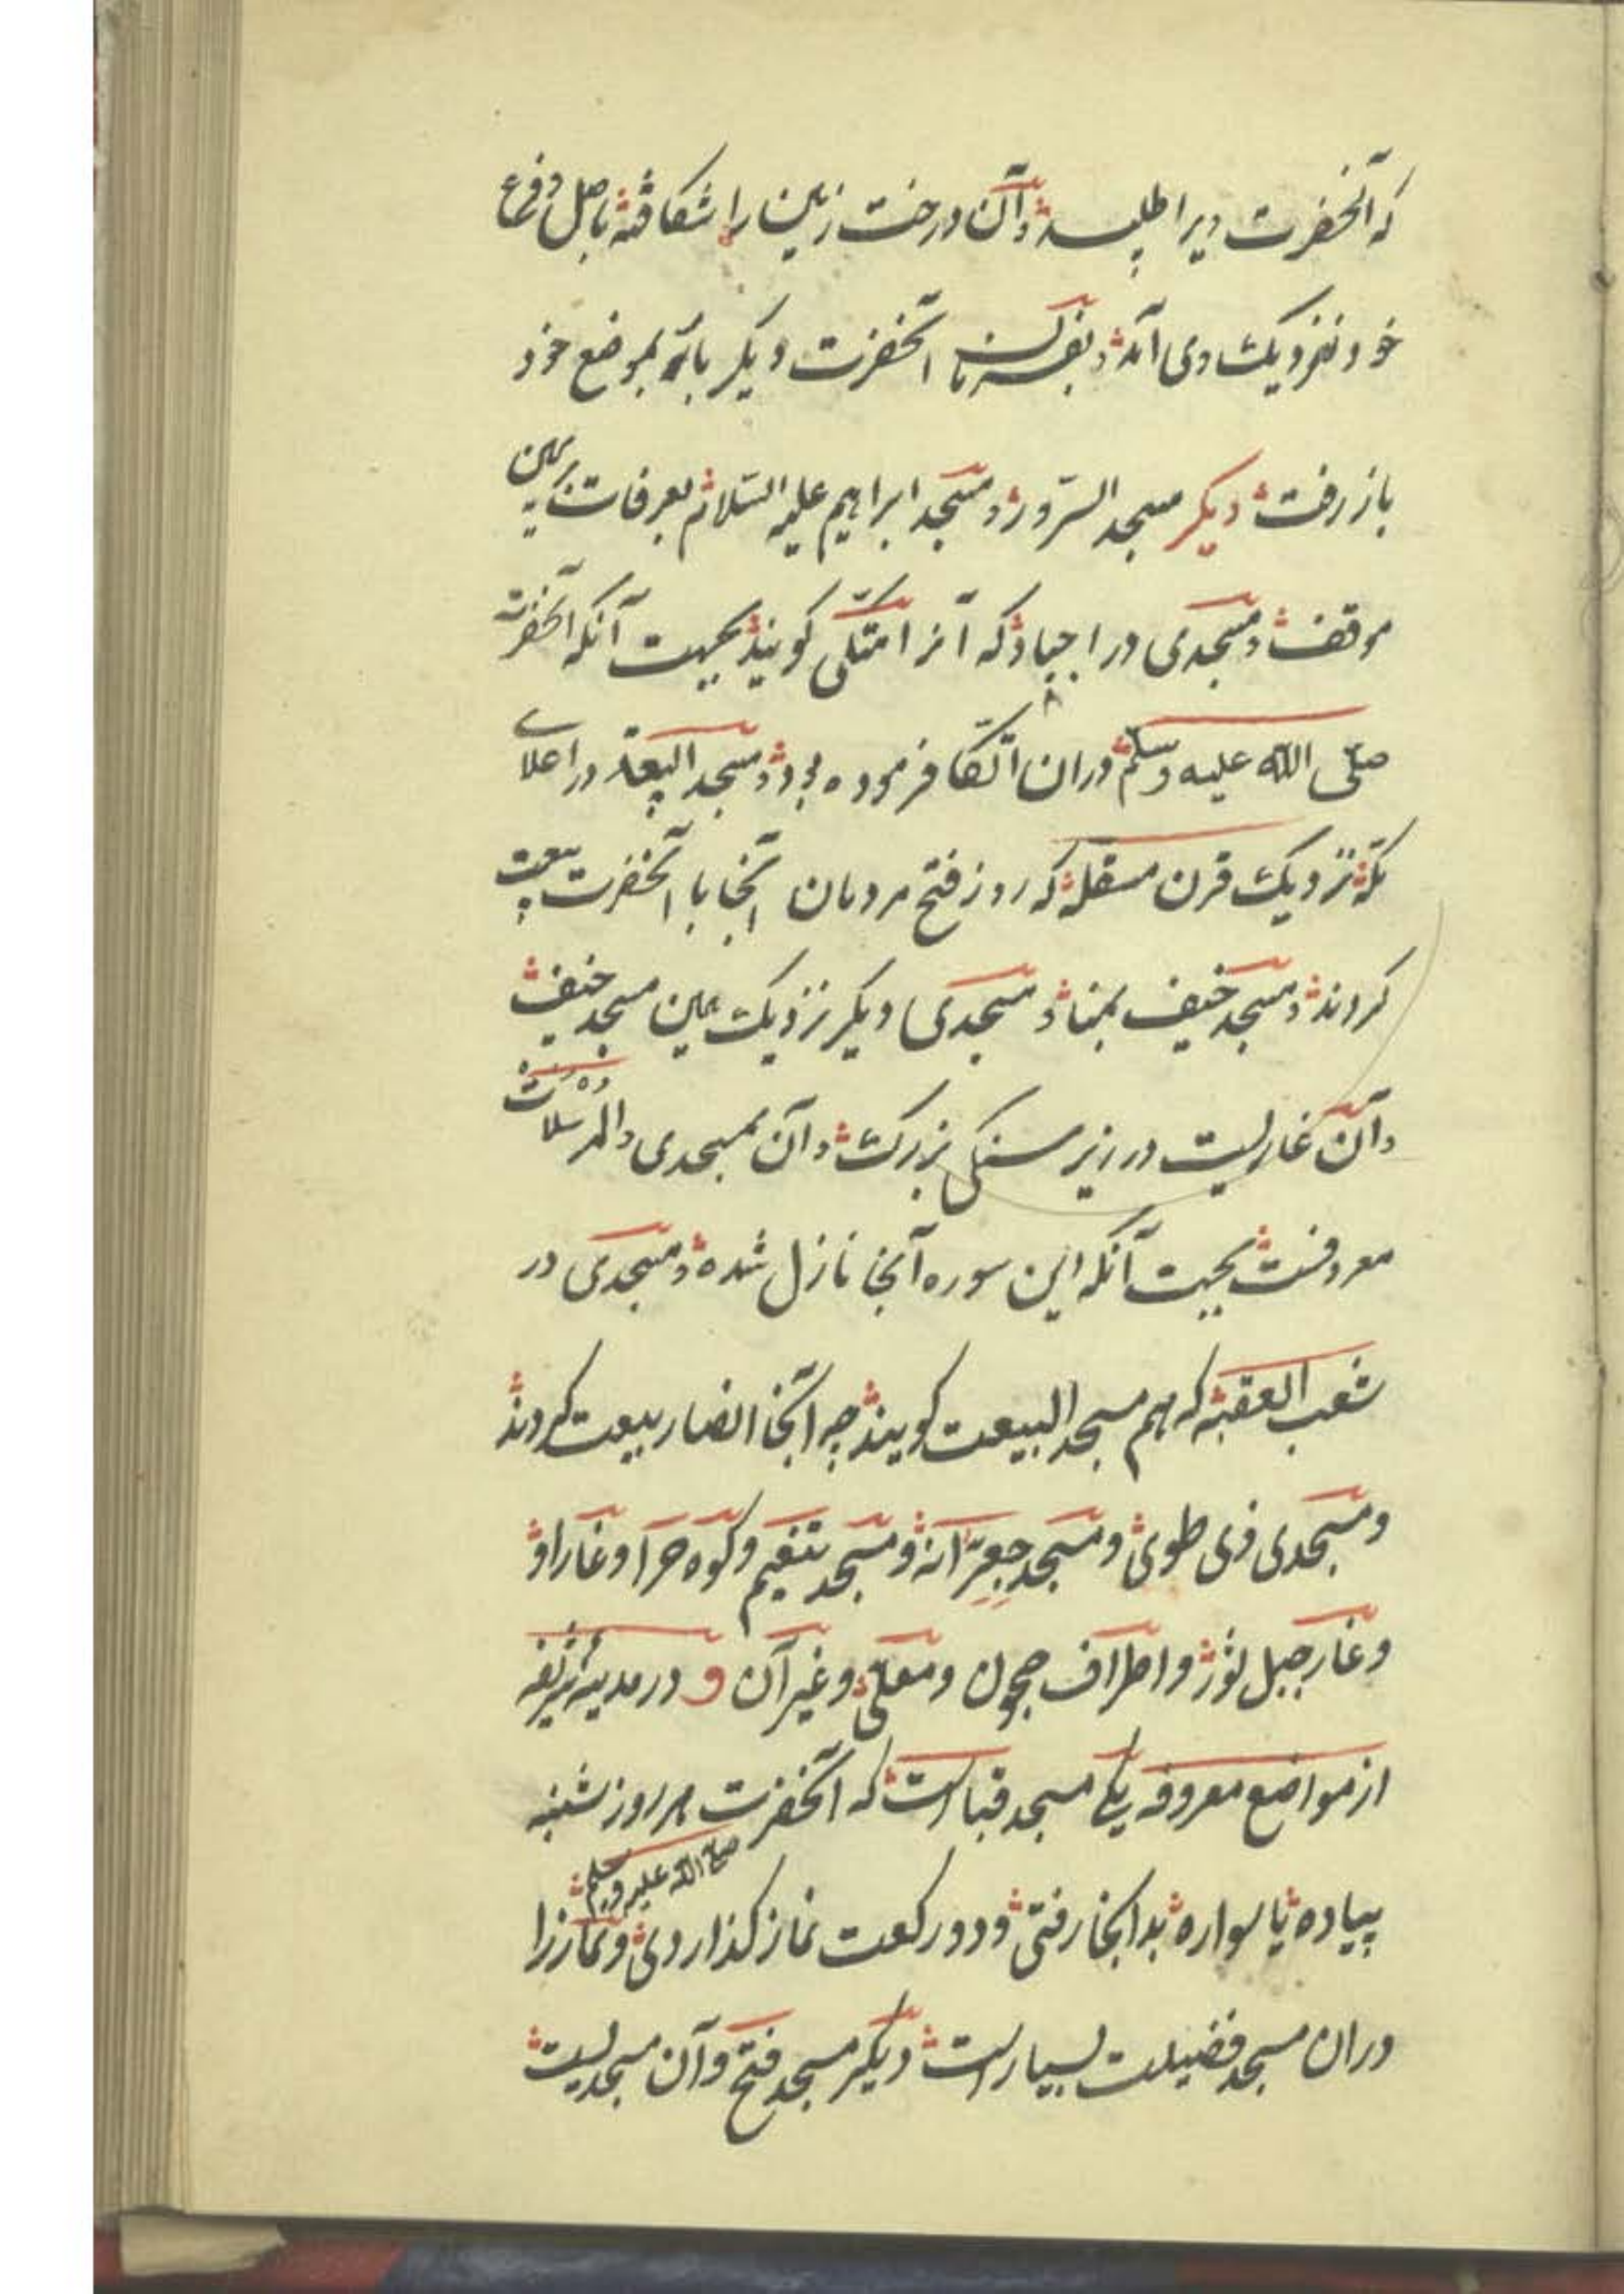 که آنحضرت ویرا طلبید و آن درخت زمین را شکافته باصل و فرع
خود نزدیک وی آمد و بفرمان آنحضرت دیگر باره بموضع خود
باز رفت دیگر مسجد السرور و مسجد ابراهیم علیه السلام بعرفات بر یمین
موقف و مسجدی در اجیاد که آنرا متکی گویند بجهت آنکه آنحضرت
صلی الله علیه وسلم دران اتکا فرموده بود و مسجد البیعة در اعلای
مکه نزدیک قرن مسقله که روز فتح مردمان آنجا با آنحضرت بیعت
کردند و مسجد خیف بمنا و مسجدی دیگر نزدیک یمین مسجد خیف
و آن غاریست در زیر سنگی بزرگ و آن بمسجدی والمرسلات
معروفست بجهت آنکه این سوره آنجا نازل شده و مسجدی در
شعب العقبه که هم مسجد البیعت گویند چه آنجا انصار بیعت کردند
و مسجدی ذی طوی و مسجد جعرانه و مسجد تنعیم و کوه حرا و غار او
و غار جبل ثور و اطراف حجون و معلی و غیر آن و در مدینه شریفه
از مواضع معروفه یکی مسجد قبا است که آنحضرت هر روز شنبه
صلی الله علیه وسلم
پیاده یا سواره بدانجا رفتی و دو رکعت نماز گذاردی و نماز را
دران مسجد فضیلت بسیار است دیگر مسجد فتح و آن مسجدیست